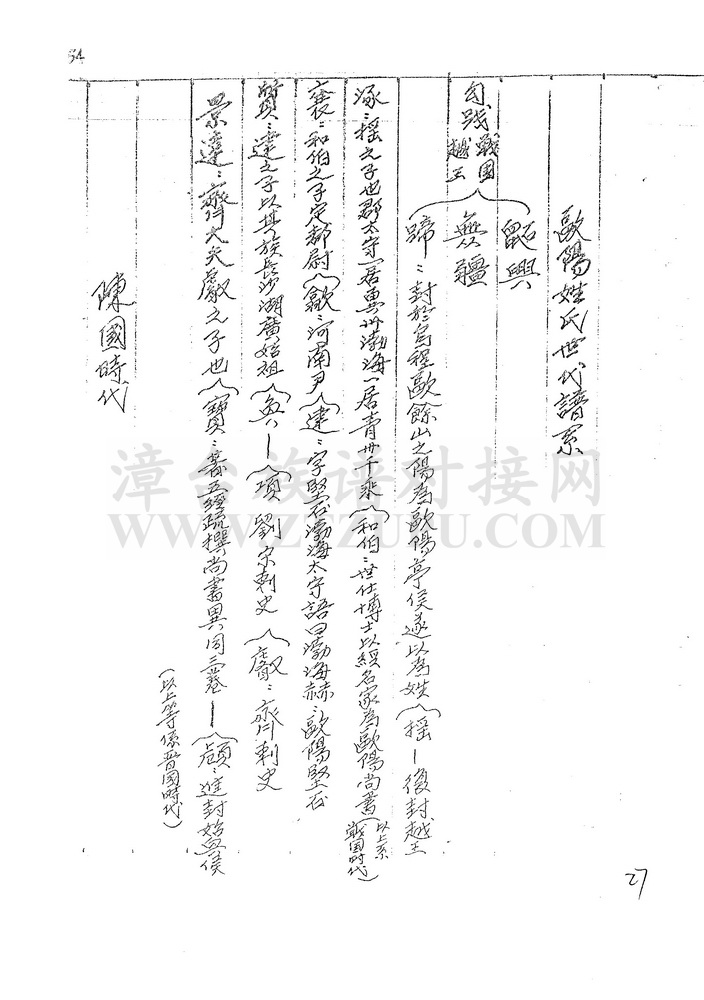 54
歐陽姓氏世代譜系
鼫興
句踐戰国越王
無疆
蹄:封於烏程歐餘山之陽為歐陽亭侯遂以為姓(搖—後封越王
涿:搖之子也郡太守一居冀州渤海一居青州千乘(和伯:世仕博士以經名家為歐陽尚書(以上系戰国時代)
襄:和伯之子定都尉(歙:河南尹(建:字堅石渤海太守語曰渤海赫:歐陽堅石
質:達之子以其族長沙湖廣始祖(奐—(項劉宗刺史(彪:齊刺史
景達:齊大夫彪之子也(寶:著五經疏撰尚書異同三卷—(頠:進封始兴侯
(以上等係晉國時代)
陳國時代
27
漳台族谱对接网
WWW.ZTZUPU.COM